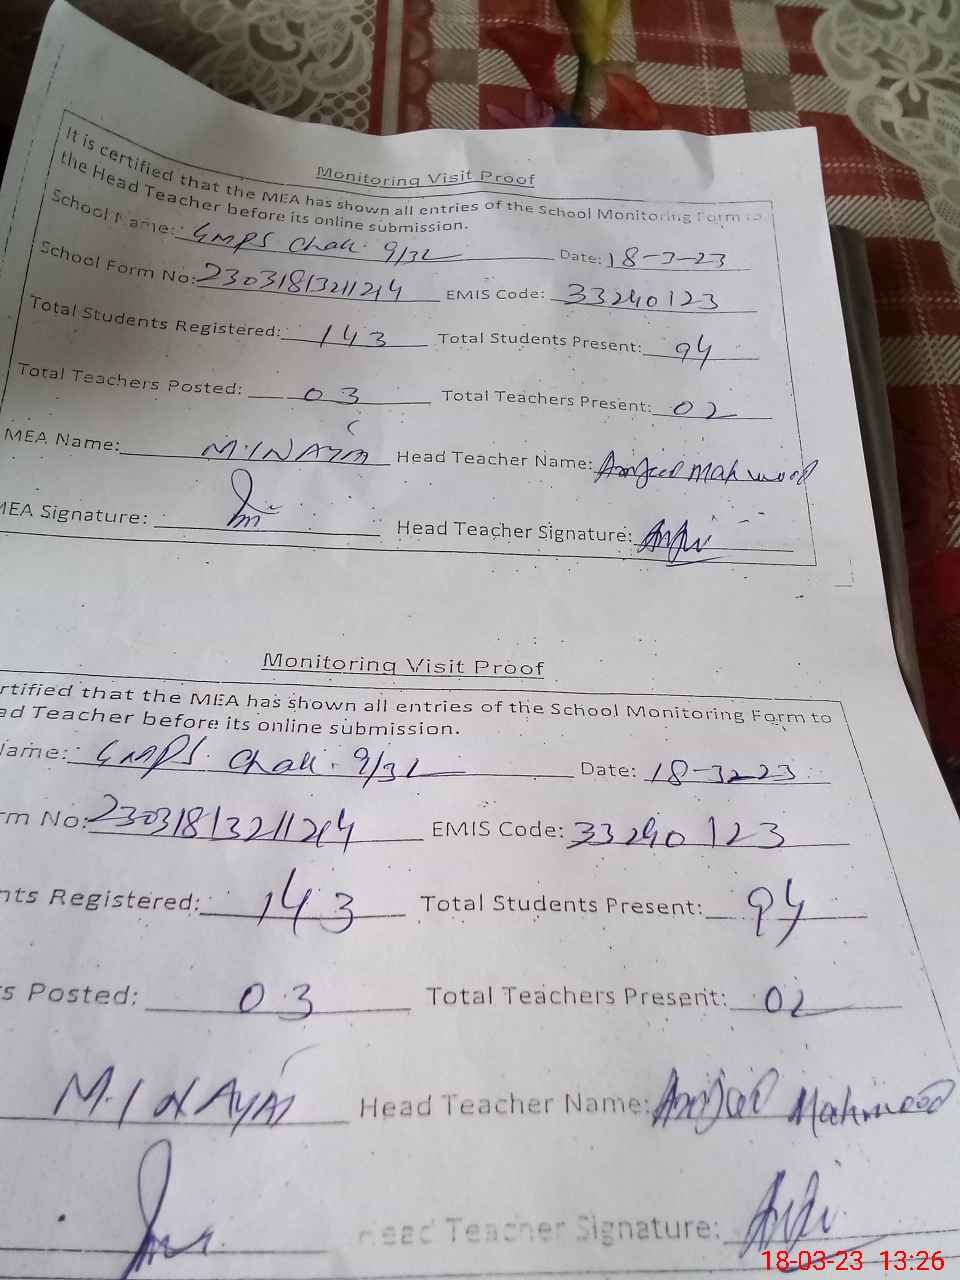 Monitoring Visit Proof
It is certified that the MEA has shown all entries of the School Monitoring Form to
the Head Teacher before its online submission.
School Name: GMPS Chak. 9/32 Date: 18-3-23
School Form No: 23031813211214 EMIS Code: 33240123
Total Students Registered: 143 Total Students Present: 94
Total Teachers Posted: 03 Total Teachers Present: 02
MEA Name: M. Head Teacher Name: Mahmood
MEA Signature: Head Teacher Signature:
Monitoring Visit Proof
rtified that the MEA has shown all entries of the School Monitoring Form to
ad Teacher before its online submission.
Name: GMPS. Chak. 9/32 Date: 18-3-23
rm No: 23031813211214 EMIS Code: 33240123
nts Registered: 143 Total Students Present: 94
s Posted: 03 Total Teachers Present: 02
M. Head Teacher Name: Mahmood
Head Teacher Signature:
18-03-23 13:26